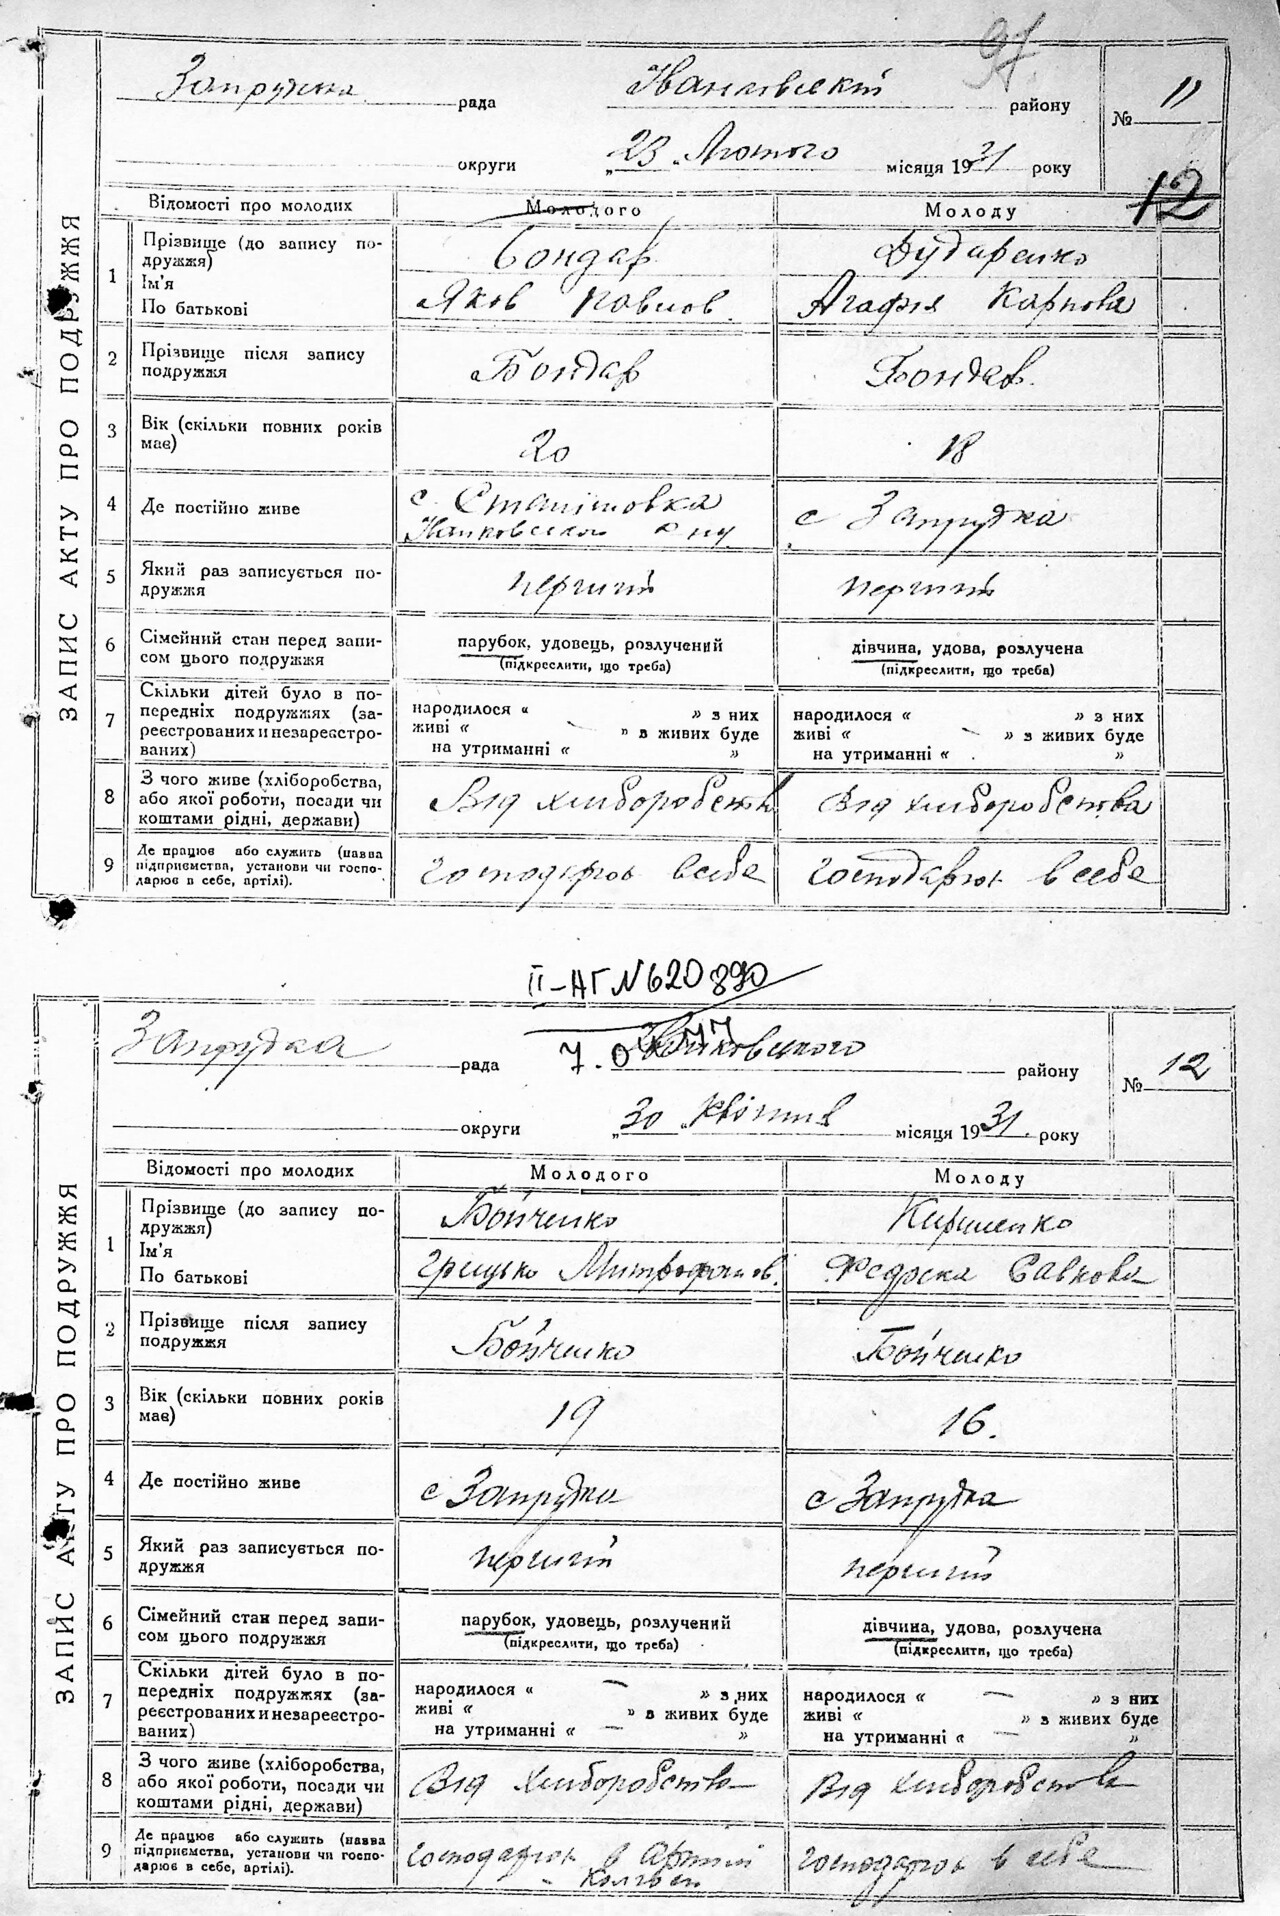 97.
Запружска рада Іванковський району № 11
округи „23„ Лютого місяця 1931 року
12
ЗАПИС АКТУ ПРО ПОДРУЖЖЯ
Відомості про молодих Молодого Молоду
1 Прізвище (до запису по- Бондар Дударенко
дружжя)
Ім'я Яков Павлов. Агафія Карпова
По батькові
2 Прізвище після запису Бондар Бондар.
подружжя
3 Вік (скільки повних років 20 18
має)
4 Де постійно живе с. с Запрудка
5 Який раз записується по- перший перший
дружжя
6 Сімейний стан перед запи- парубок, удовець, розлучений дівчина, удова, розлучена
сом цього подружжя (підкреслити, що треба) (підкреслити, що треба)
7 Скільки дітей було в по- народилося « » з них народилося « » з них
передніх подружжях (за- живі « – » в живих буде живі « – » з живих буде
реєстрованих и незареєстро- на утриманні « » на утриманні « »
ваних)
8 З чого живе (хліборобства, Від хліборобства Від хліборобства
або якої роботи, посади чи
коштами рідні, держави)
9 Де працює або служить (назва господарює в себе господарює в себе
підприємства, установи чи госпо-
дарює в себе, артілі).
II-АГ №620890
7.0
Запрудка рада Іванковського району № 12
округи „30„ Квітня місяця 1931. року
ЗАПИС АКТУ ПРО ПОДРУЖЖЯ
Відомості про молодих Молодого Молоду
1 Прізвище (до запису по- Бойченко Кириленко
дружжя)
Ім'я Грицько Митрофанов. Федоска Савкова
По батькові
2 Прізвище після запису Бойченко Бойченко
подружжя
3 Вік (скільки повних років 19 16.
має)
4 Де постійно живе с Запрудка с Запрудка
5 Який раз записується по- перший перший
дружжя
6 Сімейний стан перед запи- парубок, удовець, розлучений дівчина, удова, розлучена
сом цього подружжя (підкреслити, що треба) (підкреслити, що треба)
7 Скільки дітей було в по- народилося « – » з них народилося « – » з них
передніх подружжях (за- живі « » в живих буде живі « » з живих буде
реєстрованих и незареєстро- на утриманні « – » на утриманні « – »
ваних)
8 З чого живе (хліборобства, Від хліборобства Від хліборобства
або якої роботи, посади чи
коштами рідні, держави)
9 Де працює або служить (назва господарює в артілі господарює в себе
підприємства, установи чи госпо-
дарює в себе, артілі).